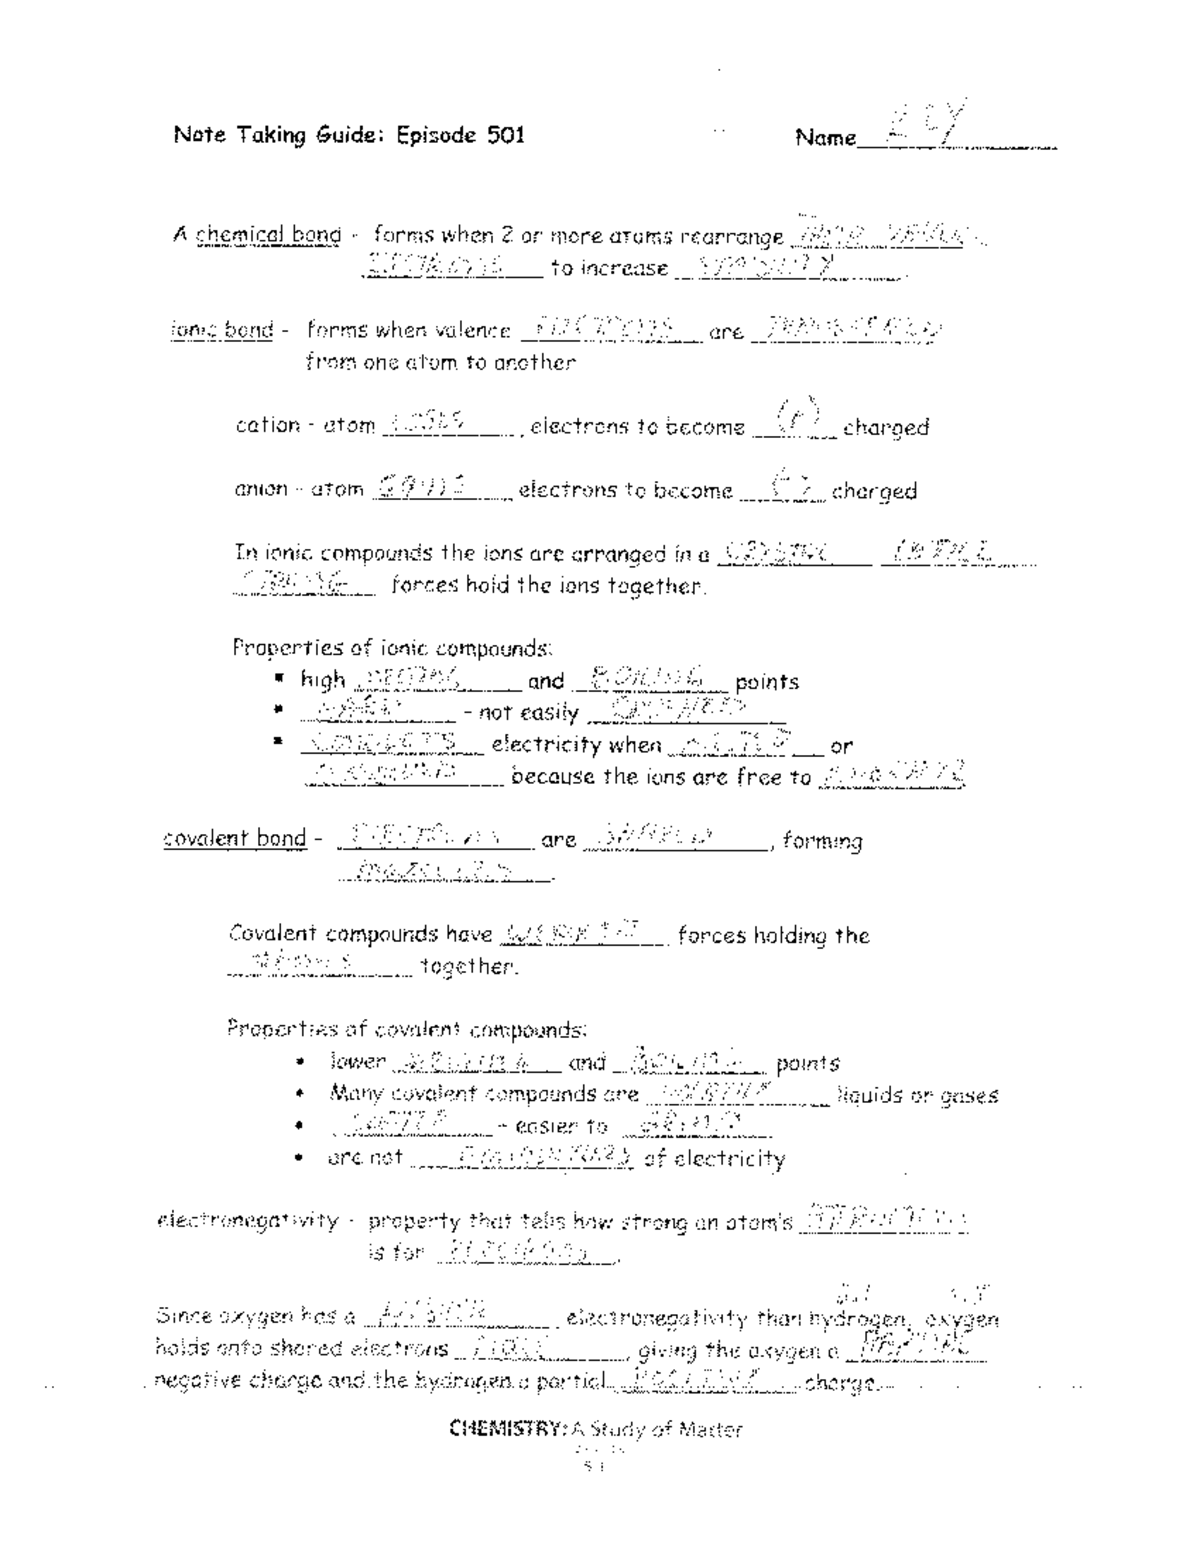 Note Taking Guide: Episode 501 Name KEY
A chemical bond - forms when 2 or more atoms rearrange THEIR VALENCE
ELECTRONS to increase STABILITY.
ionic bond - forms when valence ELECTRONS are TRANSFERRED
from one atom to another
cation - atom LOSES electrons to become (+) charged
anion - atom GAINS electrons to become (-) charged
In ionic compounds the ions are arranged in a CRYSTAL LATTICE
STRONG forces hold the ions together.
Properties of ionic compounds:
▪ high MELTING and BOILING points
▪ HARD - not easily CRUSHED
▪ CONDUCTS electricity when MELTED or
DISSOLVED because the ions are free to
covalent bond - ELECTRONS are SHARED, forming
MOLECULES.
Covalent compounds have forces holding the
together.
Properties of covalent compounds:
• lower MELTING and BOILING points
• Many covalent compounds are liquids or gases
• SOFTER - easier to GRIND
• are not CONDUCTORS of electricity
electronegativity - property that tells how strong an atom's ATTRACTION
is for ELECTRONS.
Since oxygen has a HIGHER electronegativity than hydrogen, oxygen
holds onto shared electrons MORE, giving the oxygen a PARTIAL
negative charge and the hydrogen a partial POSITIVE charge.
CHEMISTRY: A Study of Matter